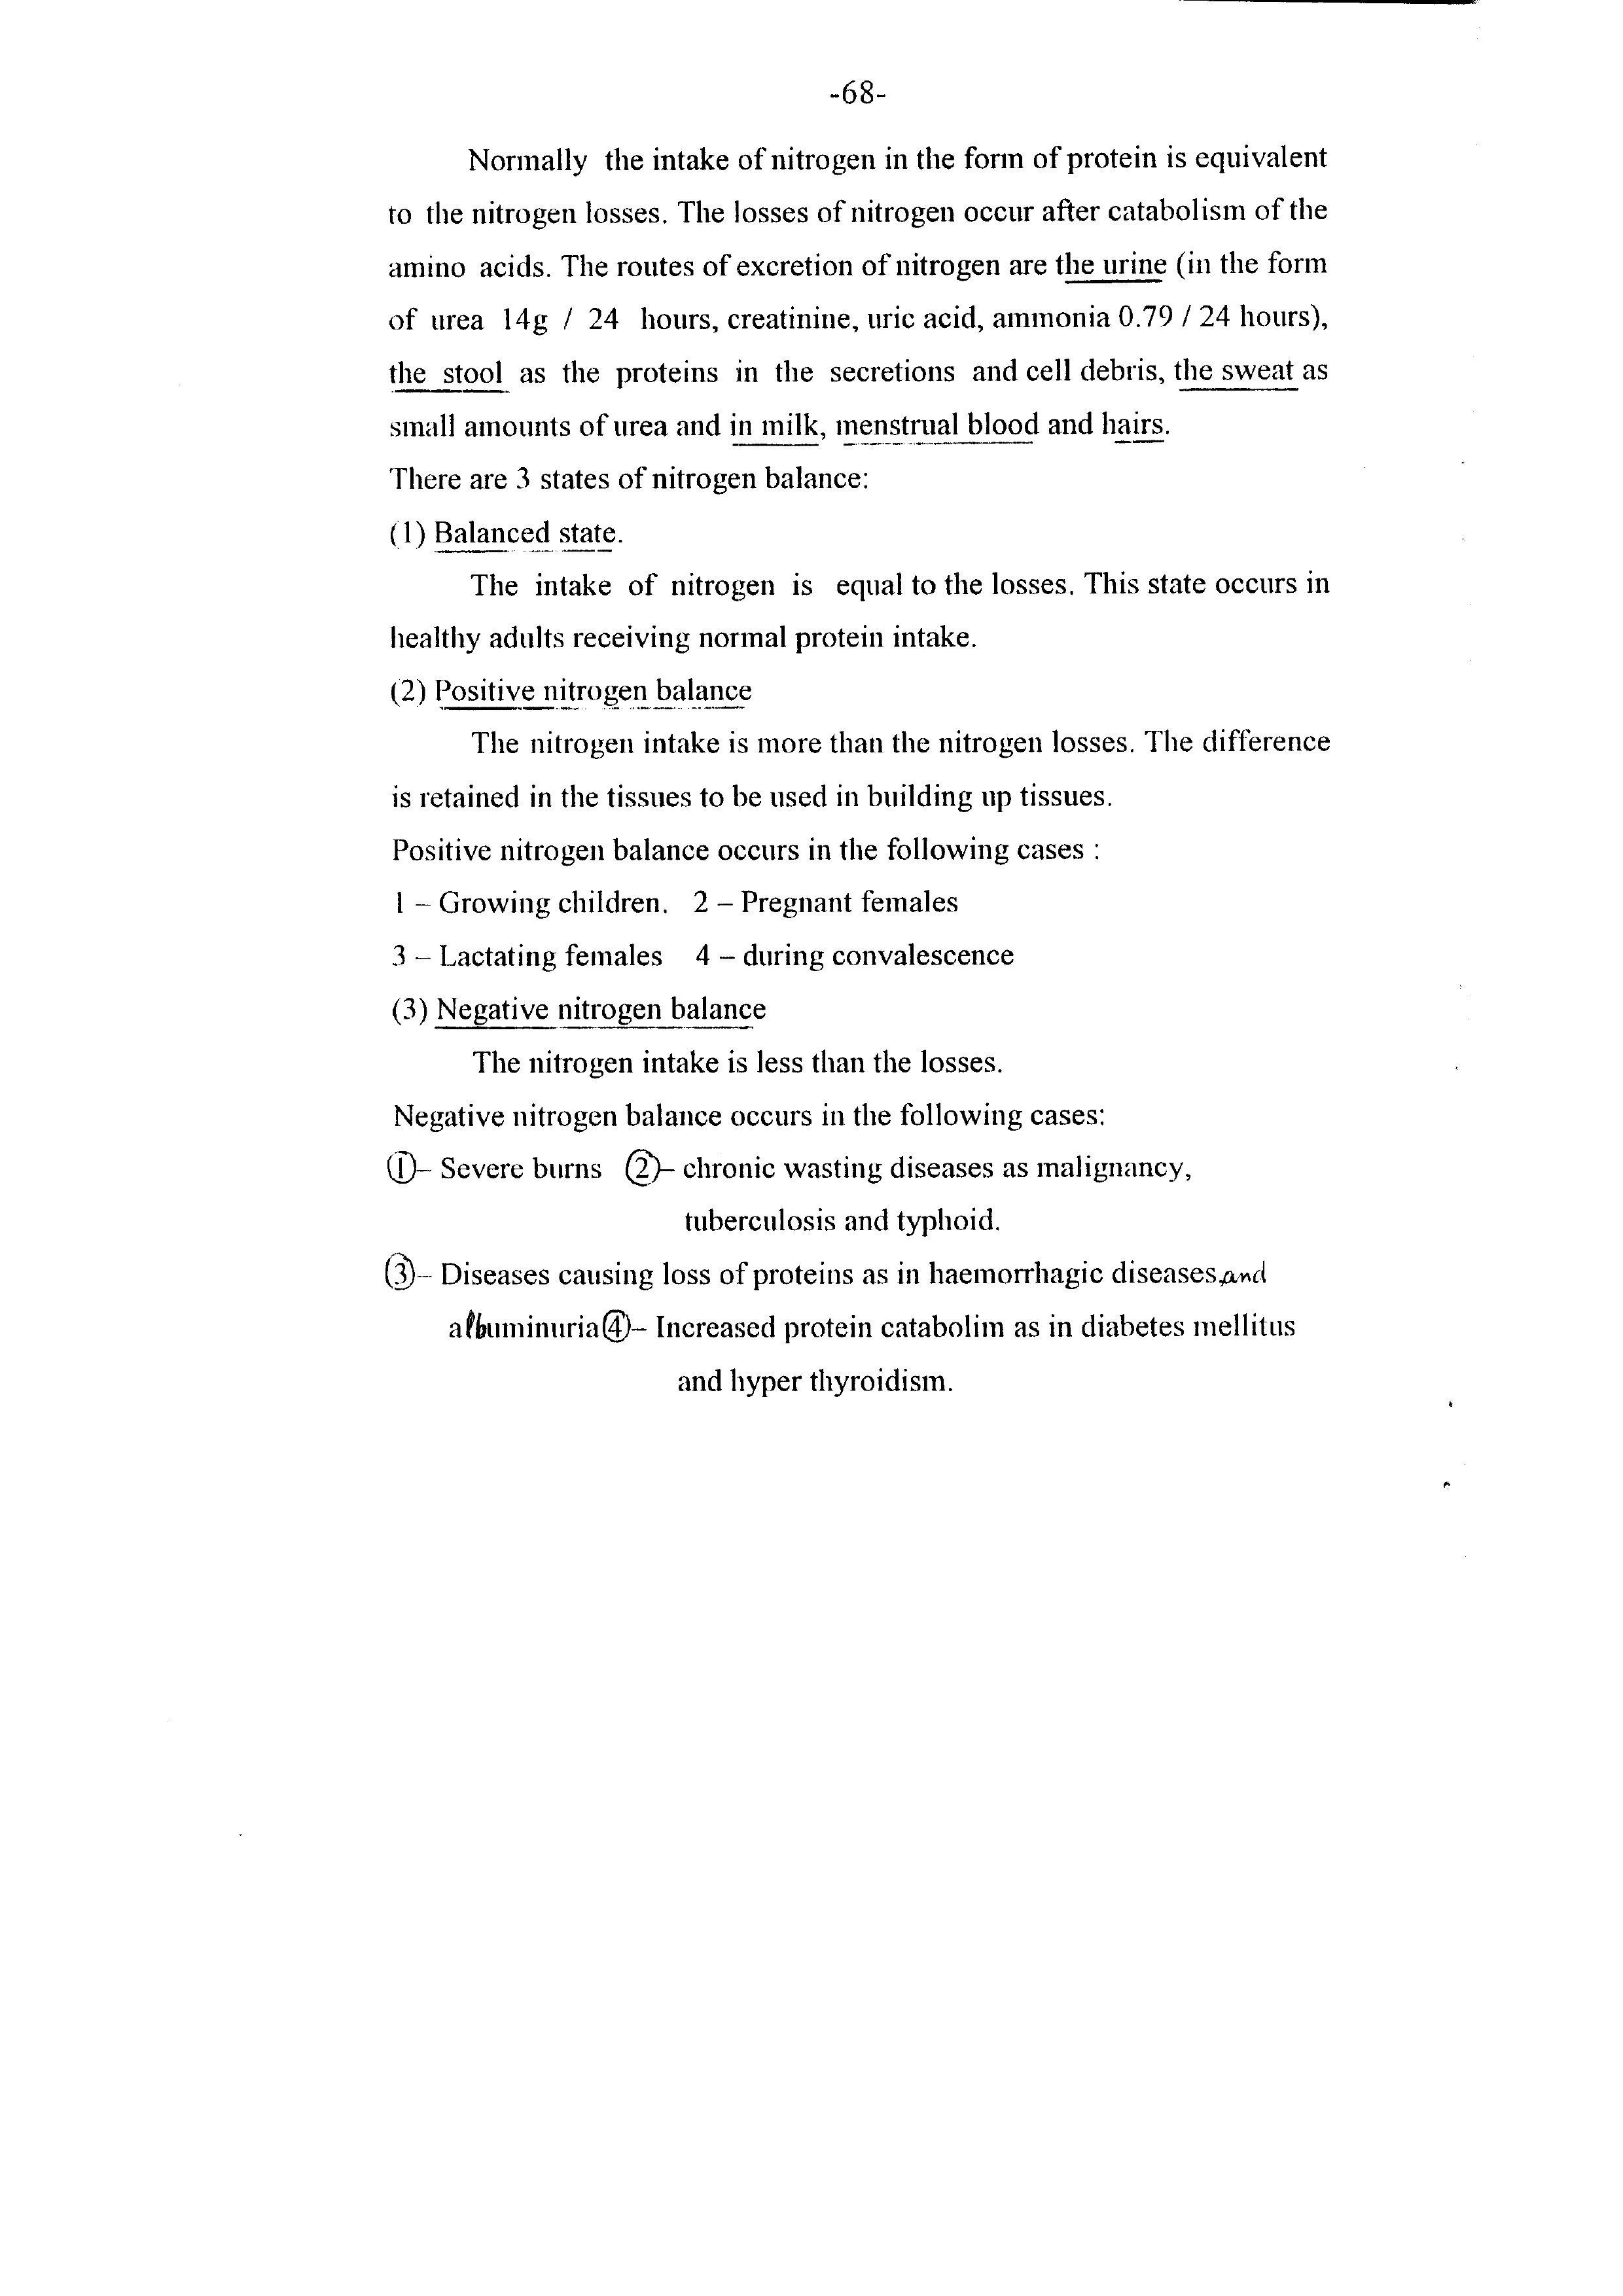 -68-
Normally the intake of nitrogen in the form of protein is equivalent
to the nitrogen losses. The losses of nitrogen occur after catabolism of the
amino acids. The routes of excretion of nitrogen are the urine (in the form
of urea 14g / 24 hours, creatinine, uric acid, ammonia 0.79 / 24 hours),
the stool as the proteins in the secretions and cell debris, the sweat as
small amounts of urea and in milk, menstrual blood and hairs.
There are 3 states of nitrogen balance:
(1) Balanced state.
The intake of nitrogen is equal to the losses. This state occurs in
healthy adults receiving normal protein intake.
(2) Positive nitrogen balance
The nitrogen intake is more than the nitrogen losses. The difference
is retained in the tissues to be used in building up tissues.
Positive nitrogen balance occurs in the following cases :
1 – Growing children. 2 – Pregnant females
3 – Lactating females 4 – during convalescence
(3) Negative nitrogen balance
The nitrogen intake is less than the losses.
Negative nitrogen balance occurs in the following cases:
①– Severe burns ②– chronic wasting diseases as malignancy,
tuberculosis and typhoid.
③– Diseases causing loss of proteins as in haemorrhagic diseases and
albuminuria ④– Increased protein catabolim as in diabetes mellitus
and hyper thyroidism.